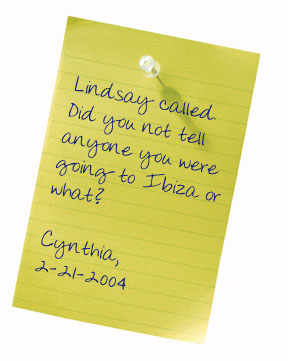 Lindsay called.
Did you not tell
anyone you were
going to Ibiza or
what?
Cynthia,
2-21-2004